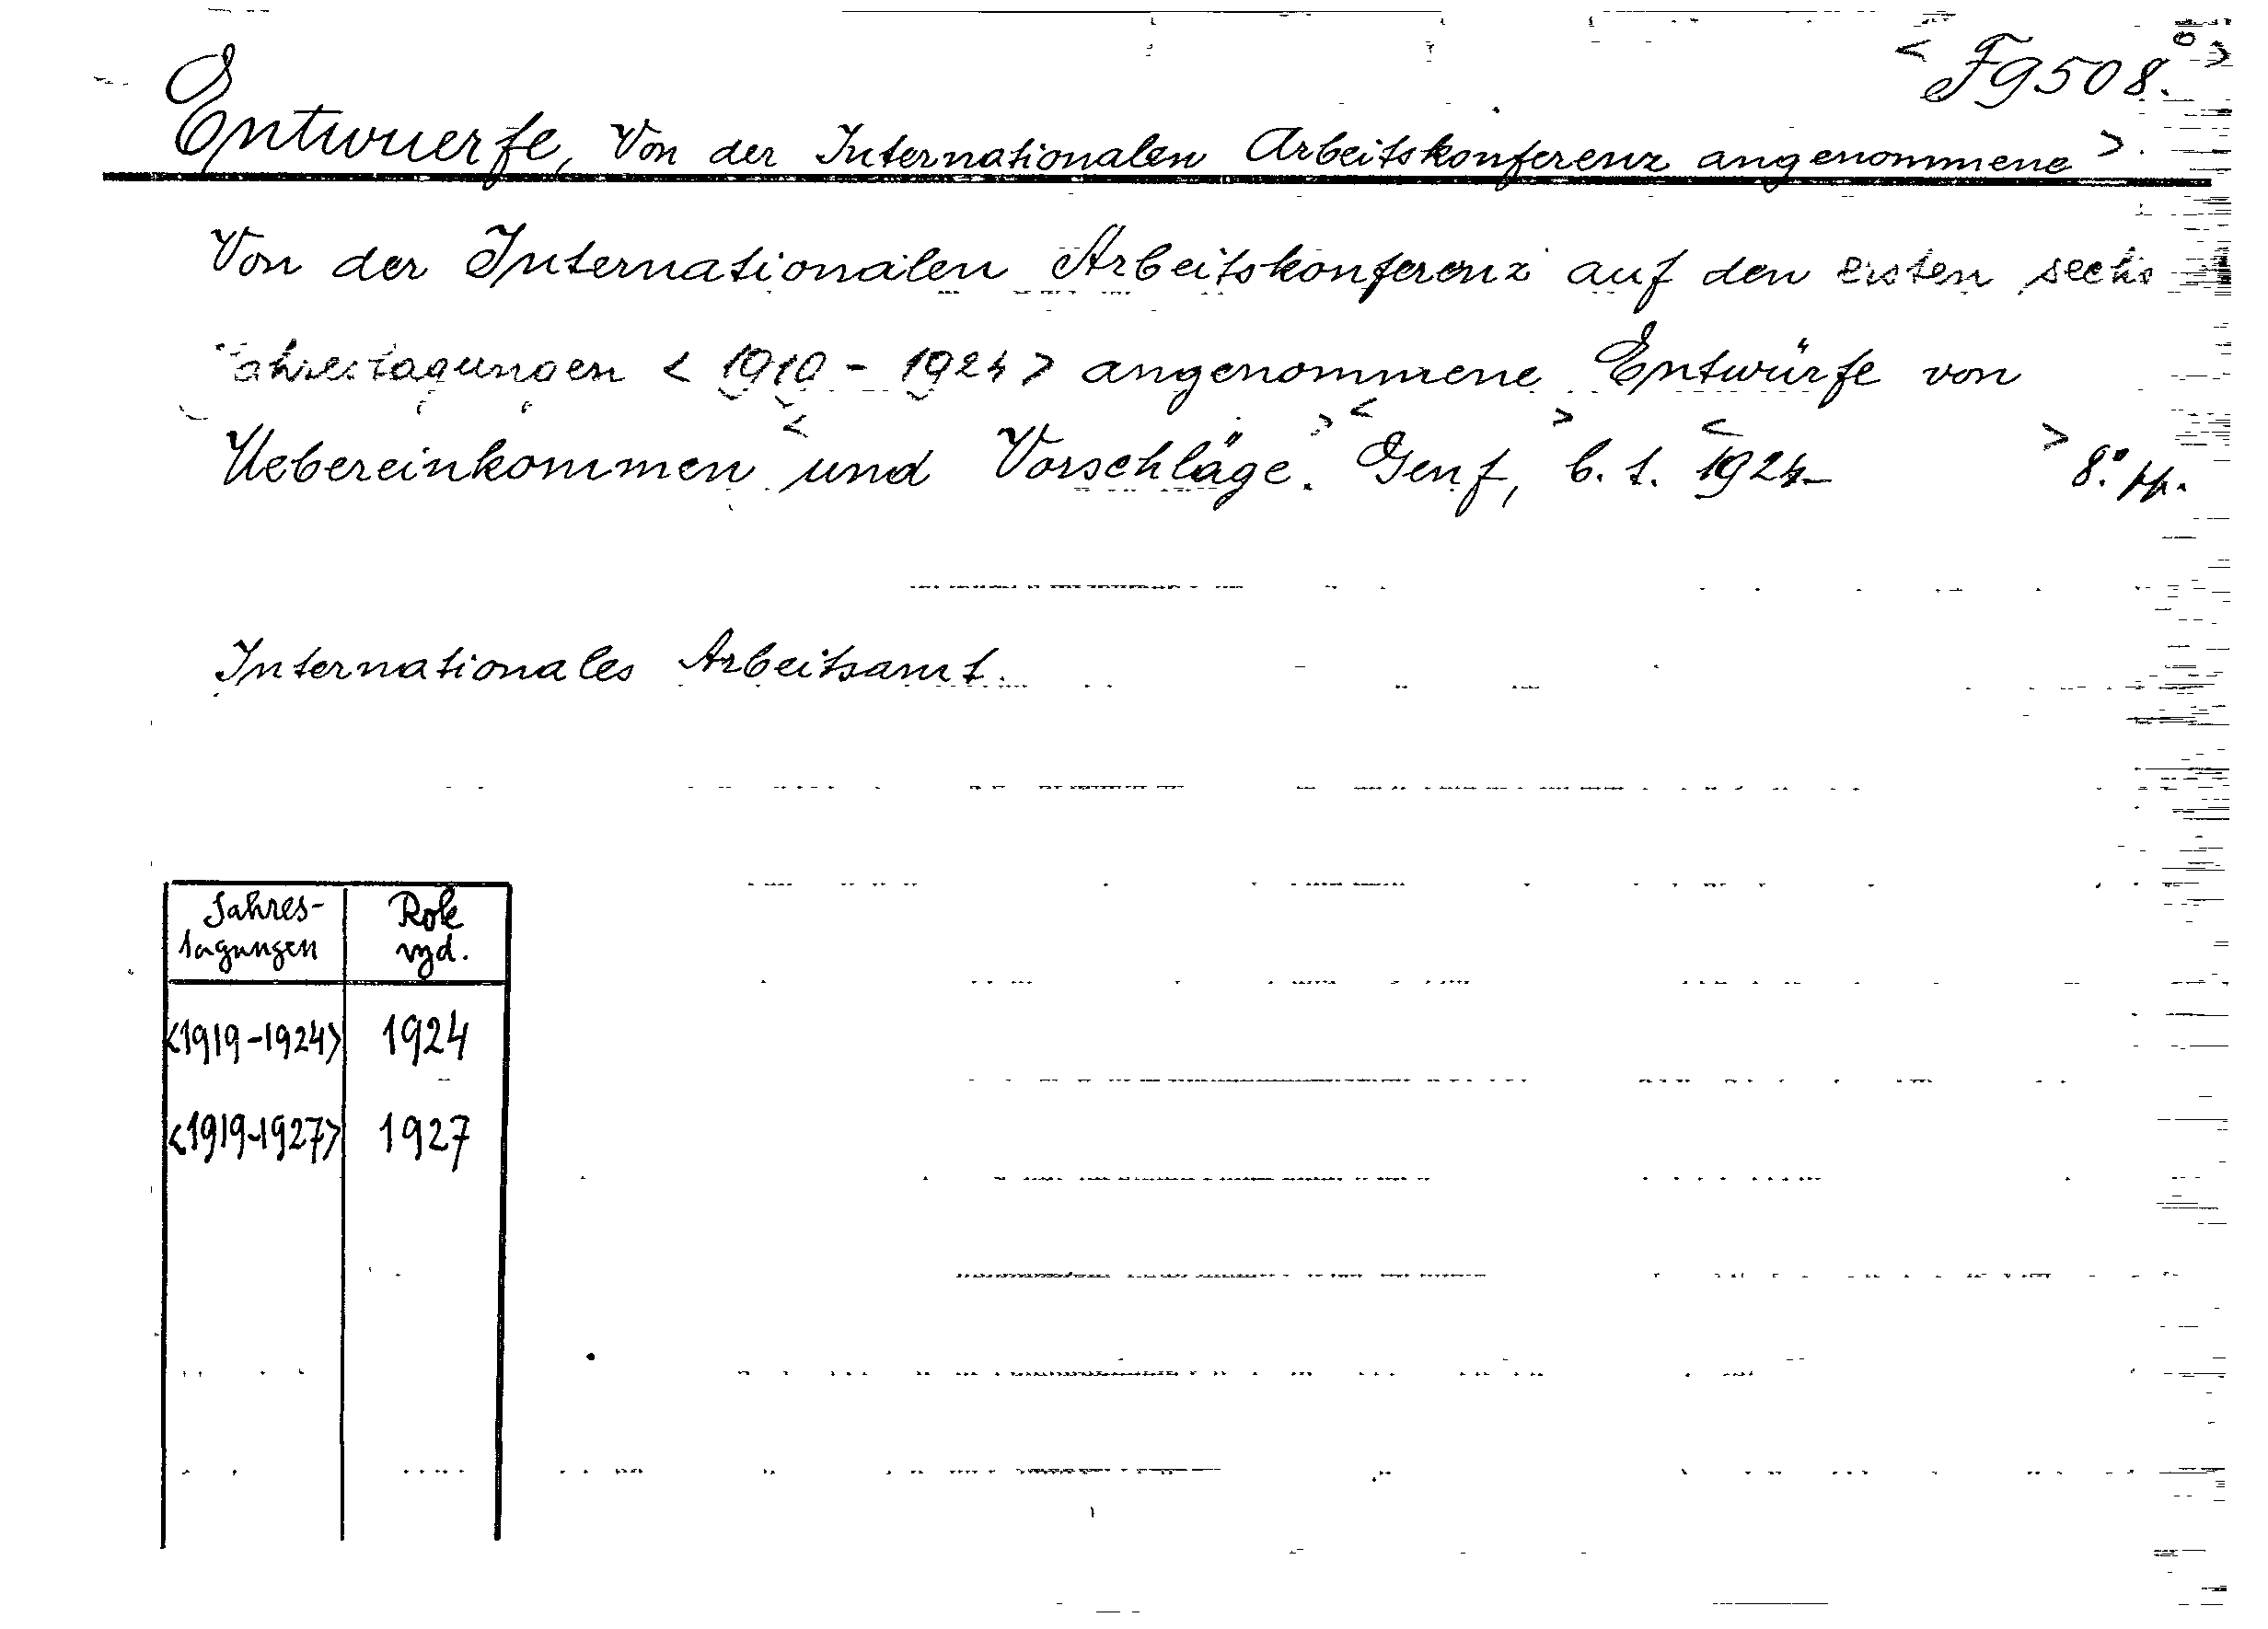 < F9508.° >
Entwuerfe, Von der Internationalen Arbeitskonferenz angenommene >.
Von der Internationalen Arbeitskonferenz auf den ersten sechs
Jahrestagungen < 1919 - 1924 > angenommene Entwürfe von
Uebereinkommen < und Vorschläge. > < Genf, > b. t. < 1924- > 8.° pp.
Internationales Arbeitsamt.
Jahres- Rok
tagungen vyd.
<1919-1924> 1924
<1919-1927> 1927